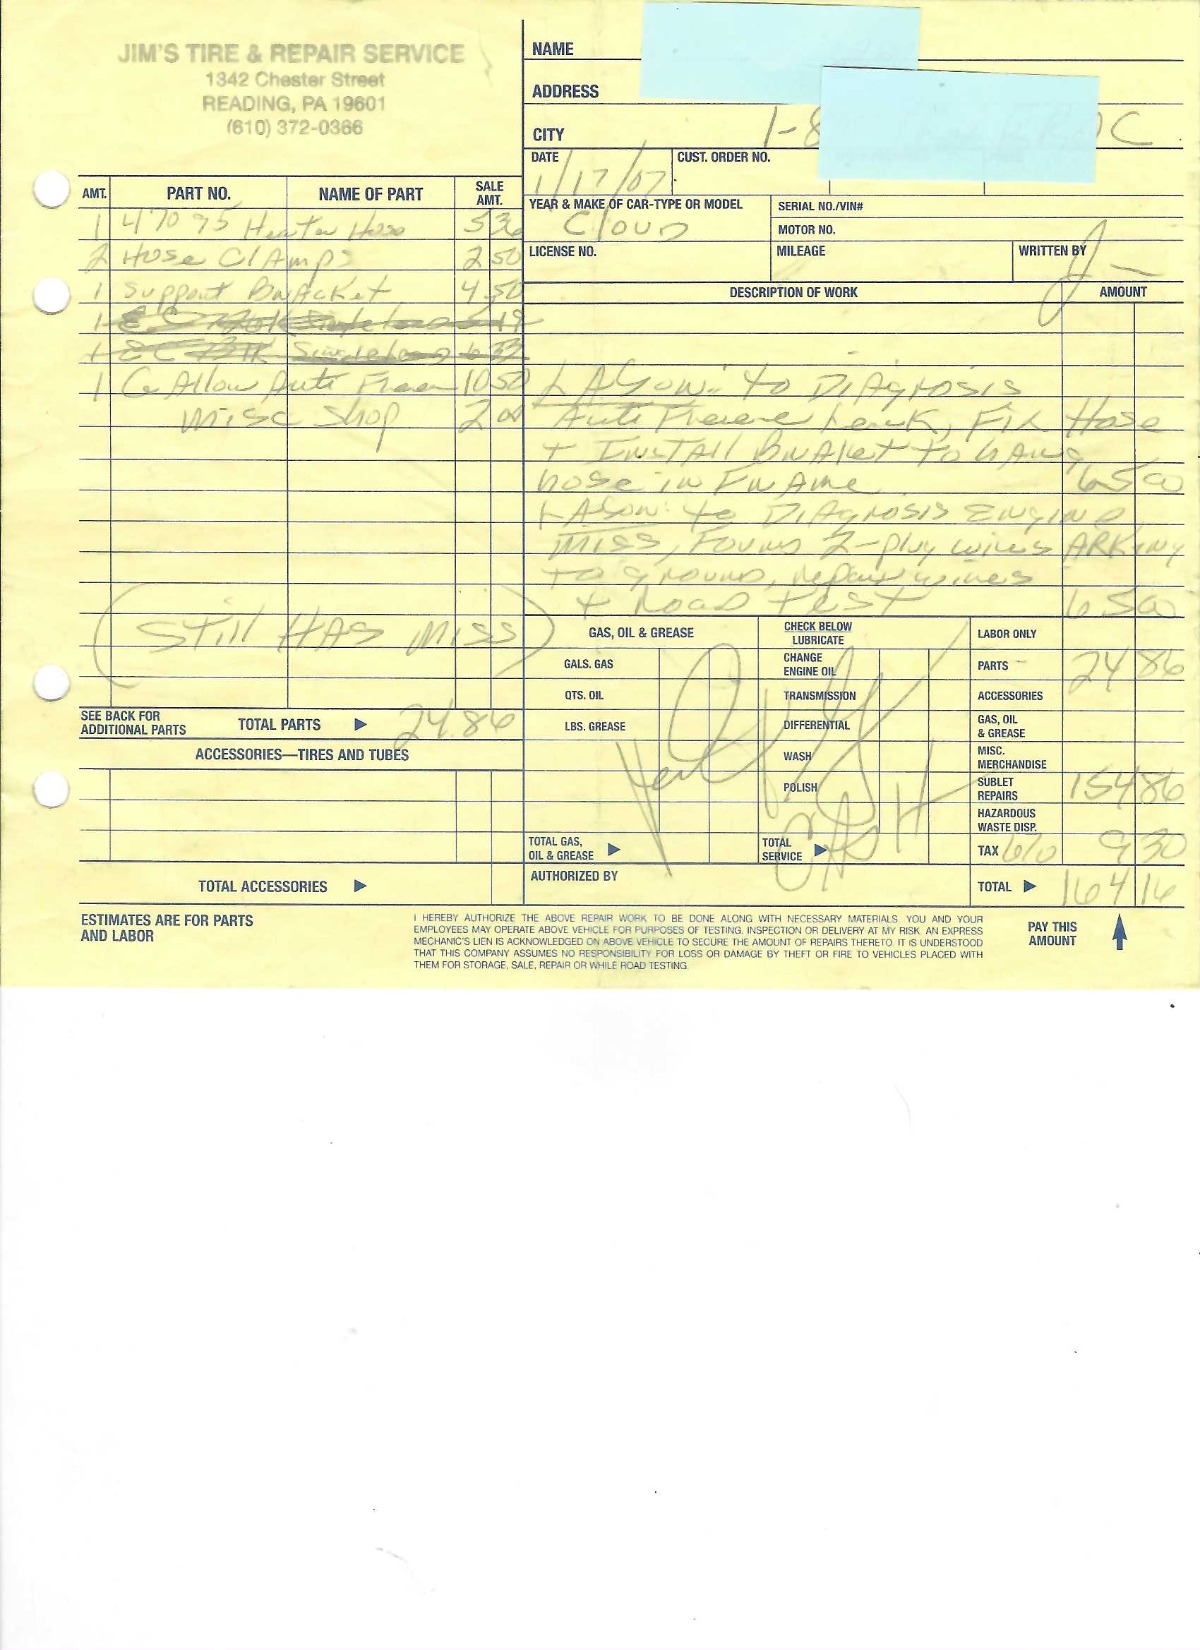 JIM'S TIRE & REPAIR SERVICE
1342 Chester Street
READING, PA 19601
(610) 372-0366
NAME
ADDRESS
CITY 1-8 C
DATE 1/17/07
CUST. ORDER NO.
YEAR & MAKE OF CAR-TYPE OR MODEL
Cloud
SERIAL NO./VIN#
MOTOR NO.
LICENSE NO.
MILEAGE
WRITTEN BY J
AMT. PART NO. NAME OF PART SALE AMT.
1 47095 Heater Hose 5 36
2 Hose Clamps 2 50
1 Support Bracket 4 50
1
1
1 Anti Freeze 10 50
misc shop 2 00
(Still HAS MISS)
SEE BACK FOR ADDITIONAL PARTS TOTAL PARTS 24.86
ACCESSORIES—TIRES AND TUBES
TOTAL ACCESSORIES
DESCRIPTION OF WORK AMOUNT
to DIAgnosis
Anti Freeze Leak, Fix Hose
+ INSTAll BrAket to hAng
hose in FrAme 65 00
to DIAgnosis Engine
MISS, Found 2-plug wires ARKing
to ground, repair wires
+ Road Test 65 00
GAS, OIL & GREASE
GALS. GAS
QTS. OIL
LBS. GREASE
TOTAL GAS, OIL & GREASE
CHECK BELOW LUBRICATE
CHANGE ENGINE OIL
TRANSMISSION
DIFFERENTIAL
WASH
POLISH
TOTAL SERVICE
CASH
LABOR ONLY
PARTS 24 86
ACCESSORIES
GAS, OIL & GREASE
MISC. MERCHANDISE
SUBLET REPAIRS 154 86
HAZARDOUS WASTE DISP.
TAX 9 30
AUTHORIZED BY
TOTAL 164 16
ESTIMATES ARE FOR PARTS
AND LABOR
I HEREBY AUTHORIZE THE ABOVE REPAIR WORK TO BE DONE ALONG WITH NECESSARY MATERIALS. YOU AND YOUR
EMPLOYEES MAY OPERATE ABOVE VEHICLE FOR PURPOSES OF TESTING, INSPECTION OR DELIVERY AT MY RISK. AN EXPRESS
MECHANIC'S LIEN IS ACKNOWLEDGED ON ABOVE VEHICLE TO SECURE THE AMOUNT OF REPAIRS THERETO. IT IS UNDERSTOOD
THAT THIS COMPANY ASSUMES NO RESPONSIBILITY FOR LOSS OR DAMAGE BY THEFT OR FIRE TO VEHICLES PLACED WITH
THEM FOR STORAGE, SALE, REPAIR OR WHILE ROAD TESTING.
PAY THIS
AMOUNT